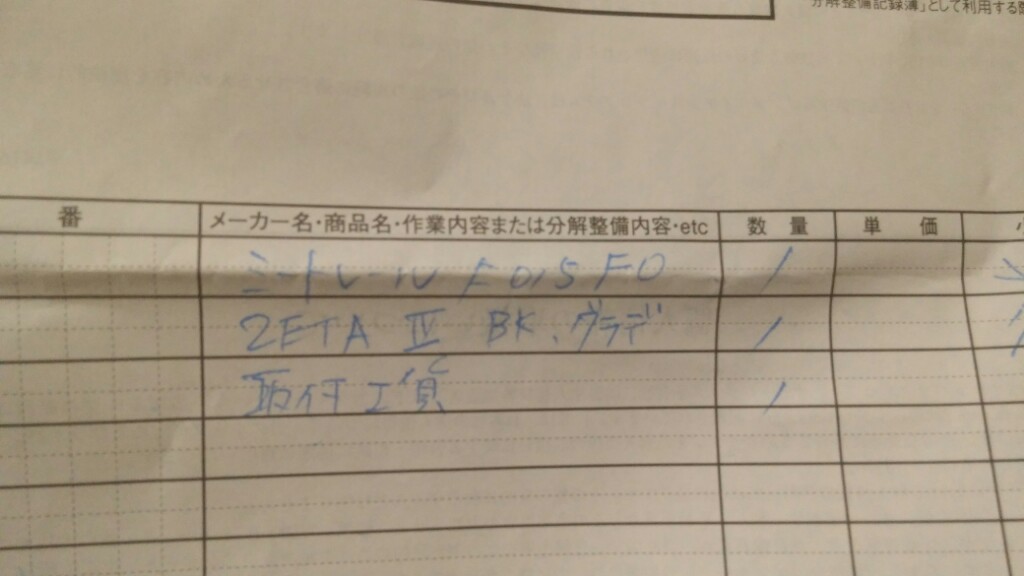 分解整備記録簿」として利用する
番 メーカー名・商品名・作業内容または分解整備内容・etc 数 量 単 価
シートレール F015 FO 1
ZETA Ⅳ BK、グラデ 1
取付工賃 1